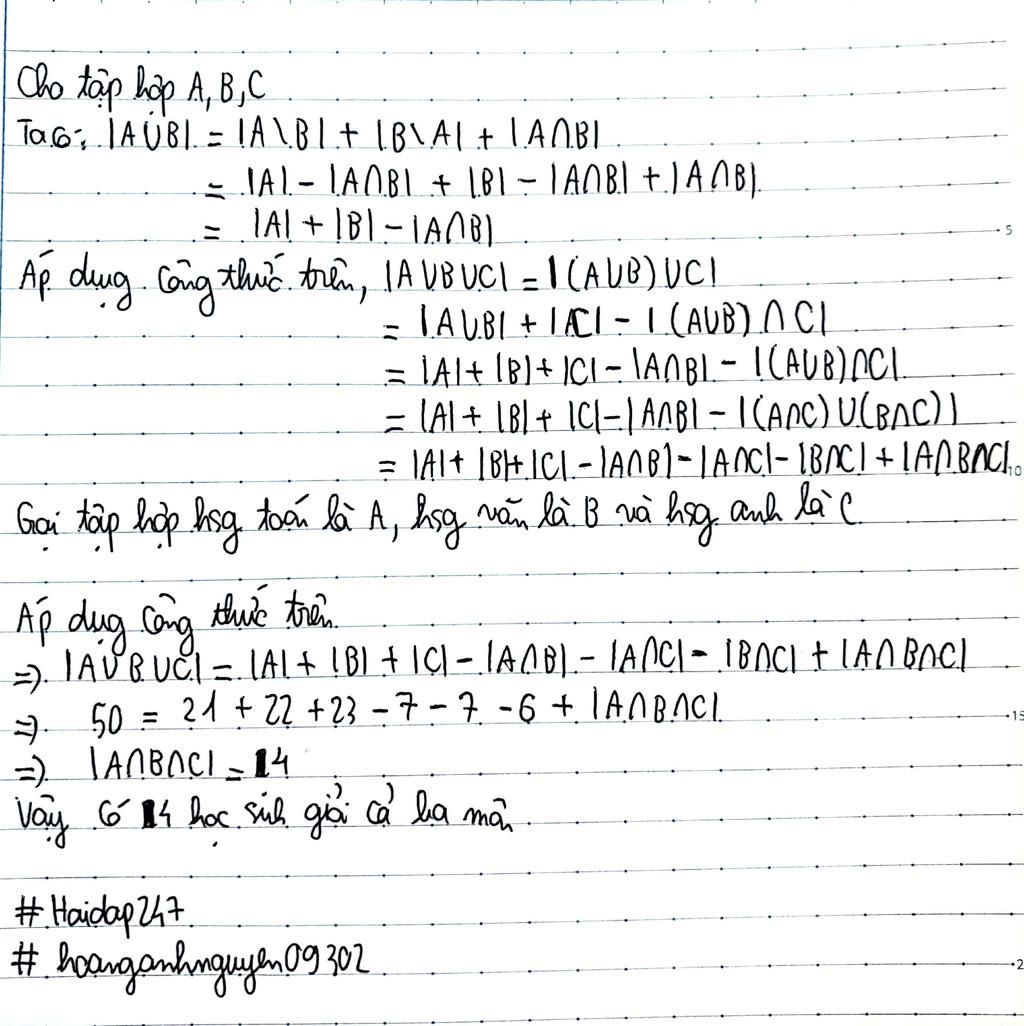 Cho tập hợp A, B, C
Ta có: |A∪B| = |A\B| + |B\A| + |A∩B|
= |A| - |A∩B| + |B| - |A∩B| + |A∩B|
= |A| + |B| - |A∩B|
5
Áp dụng công thức trên, |A∪B∪C| = |(A∪B)∪C|
= |A∪B| + |C| - |(A∪B)∩C|
= |A| + |B| + |C| - |A∩B| - |(A∪B)∩C|
= |A| + |B| + |C| - |A∩B| - |(A∩C)∪(B∩C)|
= |A| + |B| + |C| - |A∩B| - |A∩C| - |B∩C| + |A∩B∩C|
10
Gọi tập hợp hsg toán là A, hsg văn là B và hsg anh là C
Áp dụng công thức trên
=> |A∪B∪C| = |A| + |B| + |C| - |A∩B| - |A∩C| - |B∩C| + |A∩B∩C|
=> 50 = 21 + 22 + 23 - 7 - 7 - 6 + |A∩B∩C|
15
=> |A∩B∩C| = 14
Vậy có 14 học sinh giỏi cả ba môn
# Hoidap247
# hoanganhnguyen09302
2